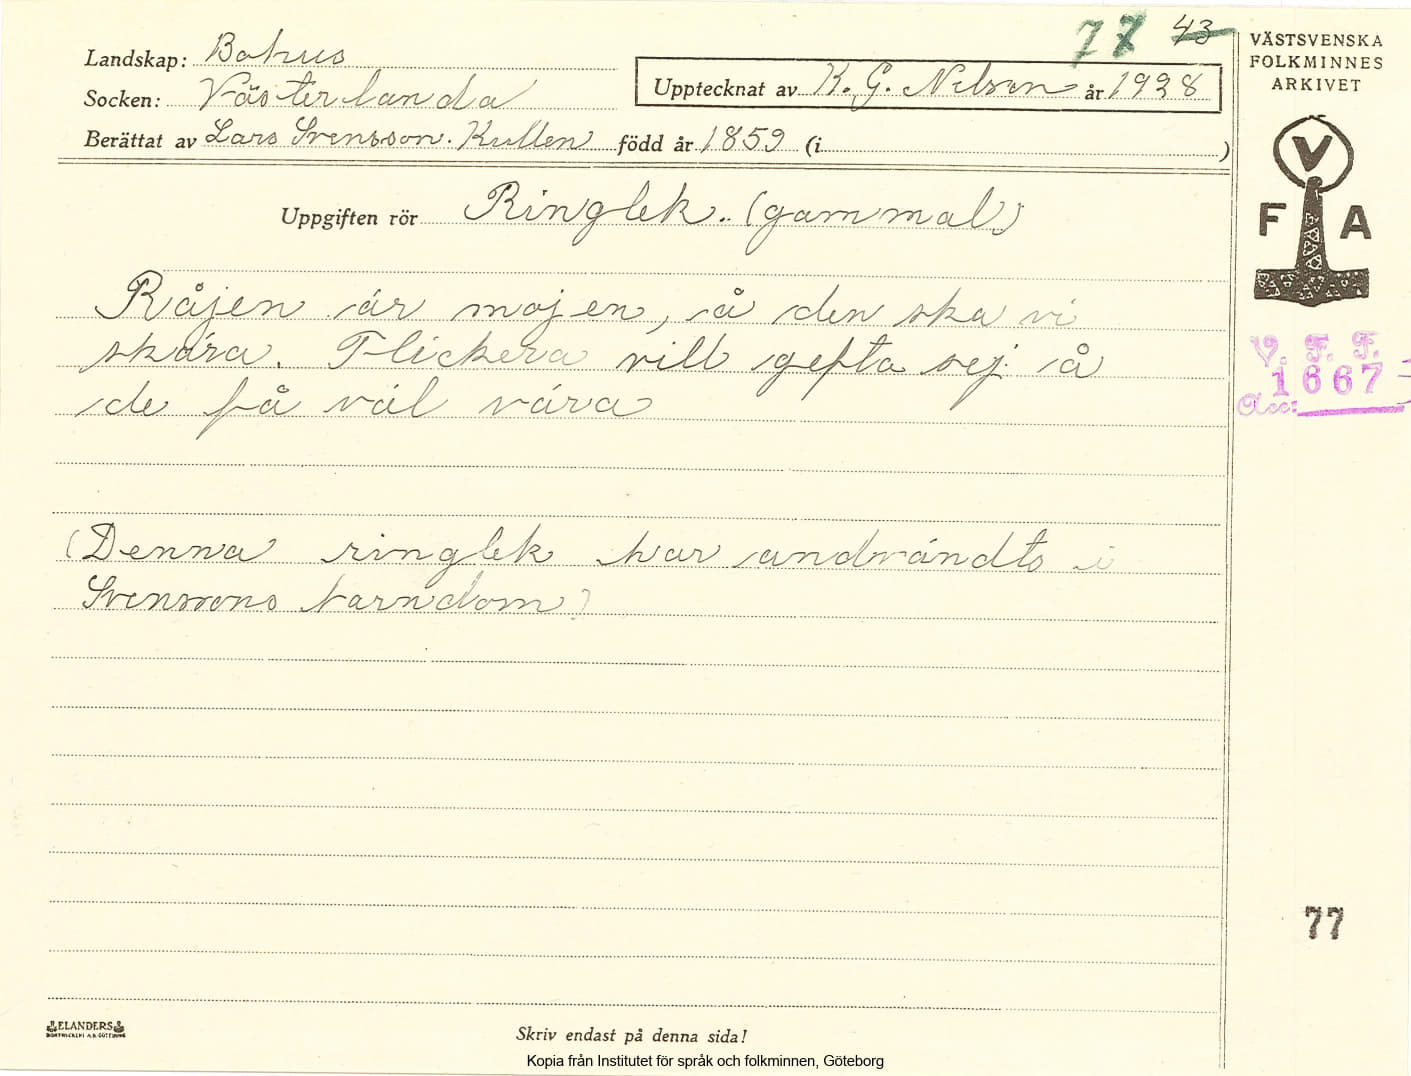 77 43
Landskap: Bohus
Socken: Västerlanda
Upptecknat av K. G. Nilson år 1928
Berättat av Lars Svensson. Kullen född år 1859 (i )
Uppgiften rör Ringlek. (gammal)
Råjen är mojen, å den ska vi
skära. Flickera vill gefta sej å
de få väl vära
(Denna ringlek har andvändts i
Svenssons barndom)
VÄSTSVENSKA
FOLKMINNES
ARKIVET
V
F A
V. F. F.
1667
Acc:
77
ELANDERS
BOKTRYCKERI A.B. GÖTEBORG
Skriv endast på denna sida!
Kopia från Institutet för språk och folkminnen, Göteborg